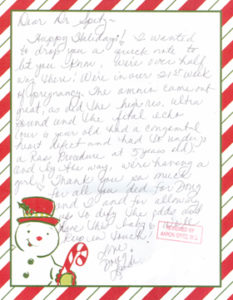 Dear Dr Spitz~
Happy Holidays! I wanted
to drop you a quick note to
let you know we're over half
way there! We're in our 21st week
of pregnancy. The amnio came out
great, as did the high res. ultra
sound and the fetal echo
(our 6 year old had a congenital
heart defect and had to undergo
a Ross Procedure at 5 years old)
and by the way, we're having a
girl! Thank you so much
for all you did for Doug
and I and for allowing
us to defy the odds and
have this baby
Keep in touch!
Love,